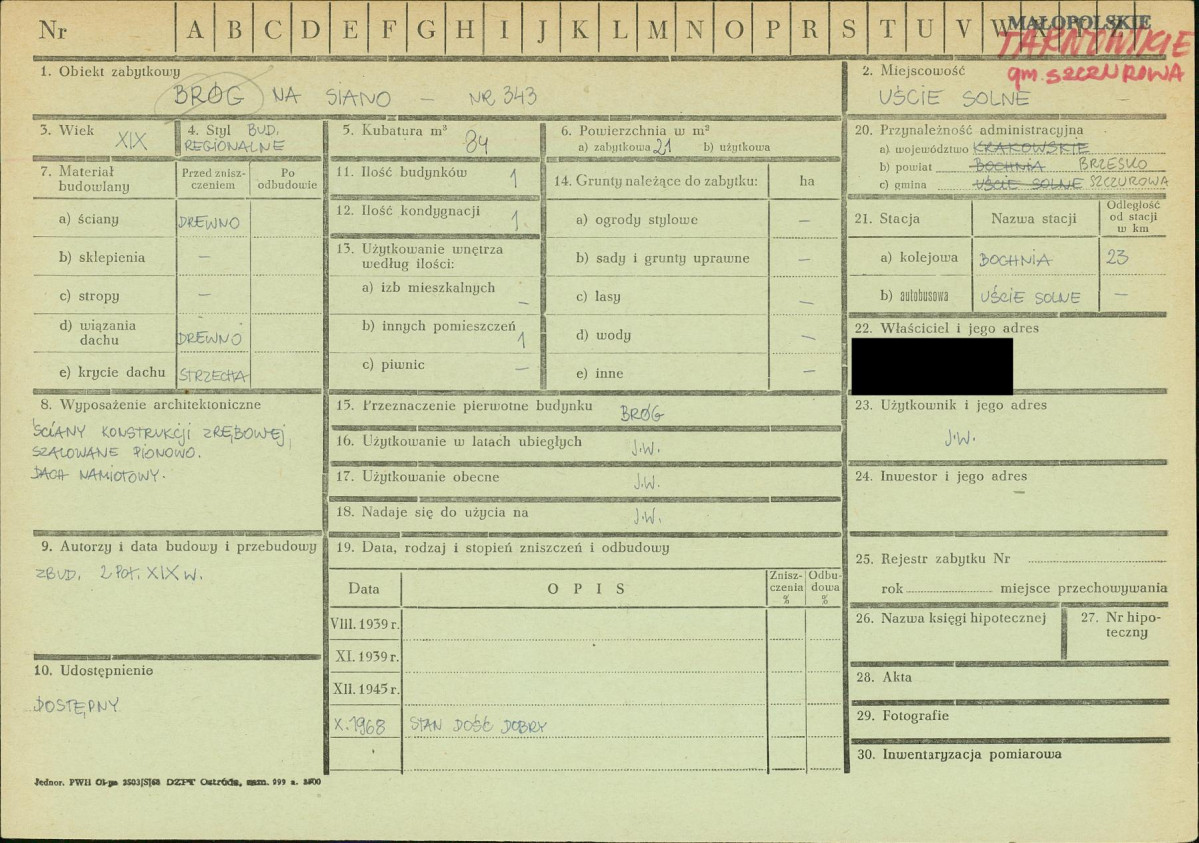 Nr A B C D E F G H I J K L M N O P R S T U V W
MAŁOPOLSKIE
TARNOWSKIE
gm. SZCZUROWA
1. Obiekt zabytkowy
BRÓG NA SIANO — NR 343
2. Miejscowość
UŚCIE SOLNE —
3. Wiek XIX
4. Styl BUD.
REGIONALNE
5. Kubatura m³
84
6. Powierzchnia w m²
a) zabytkowa 21 b) użytkowa
7. Materiał
budowlany
Przed znisz-
czeniem
Po
odbudowie
a) ściany DREWNO
b) sklepienia —
c) stropy —
d) wiązania
dachu DREWNO
e) krycie dachu STRZECHA
8. Wyposażenie architektoniczne
ŚCIANY KONSTRUKCJI ZRĘBOWEJ,
SZALOWANE PIONOWO.
DACH NAMIOTOWY.
9. Autorzy i data budowy i przebudowy
ZBUD. 2 POŁ. XIX W.
10. Udostępnienie
DOSTĘPNY
11. Ilość budynków 1
12. Ilość kondygnacji 1.
13. Użytkowanie wnętrza
według ilości:
a) izb mieszkalnych —
b) innych pomieszczeń 1
c) piwnic —
14. Grunty należące do zabytku: ha
a) ogrody stylowe —
b) sady i grunty uprawne —
c) lasy —
d) wody —
e) inne —
15. Przeznaczenie pierwotne budynku BRÓG
16. Użytkowanie w latach ubiegłych J.W.
17. Użytkowanie obecne J.W.
18. Nadaje się do użycia na J.W.
19. Data, rodzaj i stopień zniszczeń i odbudowy
Data OPIS Znisz-
czenia
% Odbu-
dowa
%
VIII. 1939 r.
XI. 1939 r.
XII. 1945 r.
X. 1968 STAN DOŚĆ DOBRY
20. Przynależność administracyjna
a) województwo KRAKOWSKIE
b) powiat BOCHNIA BRZESKO
c) gmina UŚCIE SOLNE SZCZUROWA
21. Stacja Nazwa stacji Odległość
od stacji
w km
a) kolejowa BOCHNIA 23
b) autobusowa UŚCIE SOLNE —
22. Właściciel i jego adres
23. Użytkownik i jego adres
J.W.
24. Inwestor i jego adres
—
25. Rejestr zabytku Nr
rok miejsce przechowywania
26. Nazwa księgi hipotecznej
27. Nr hipo-
teczny
28. Akta
29. Fotografie
30. Inwentaryzacja pomiarowa
Jednor. PWH